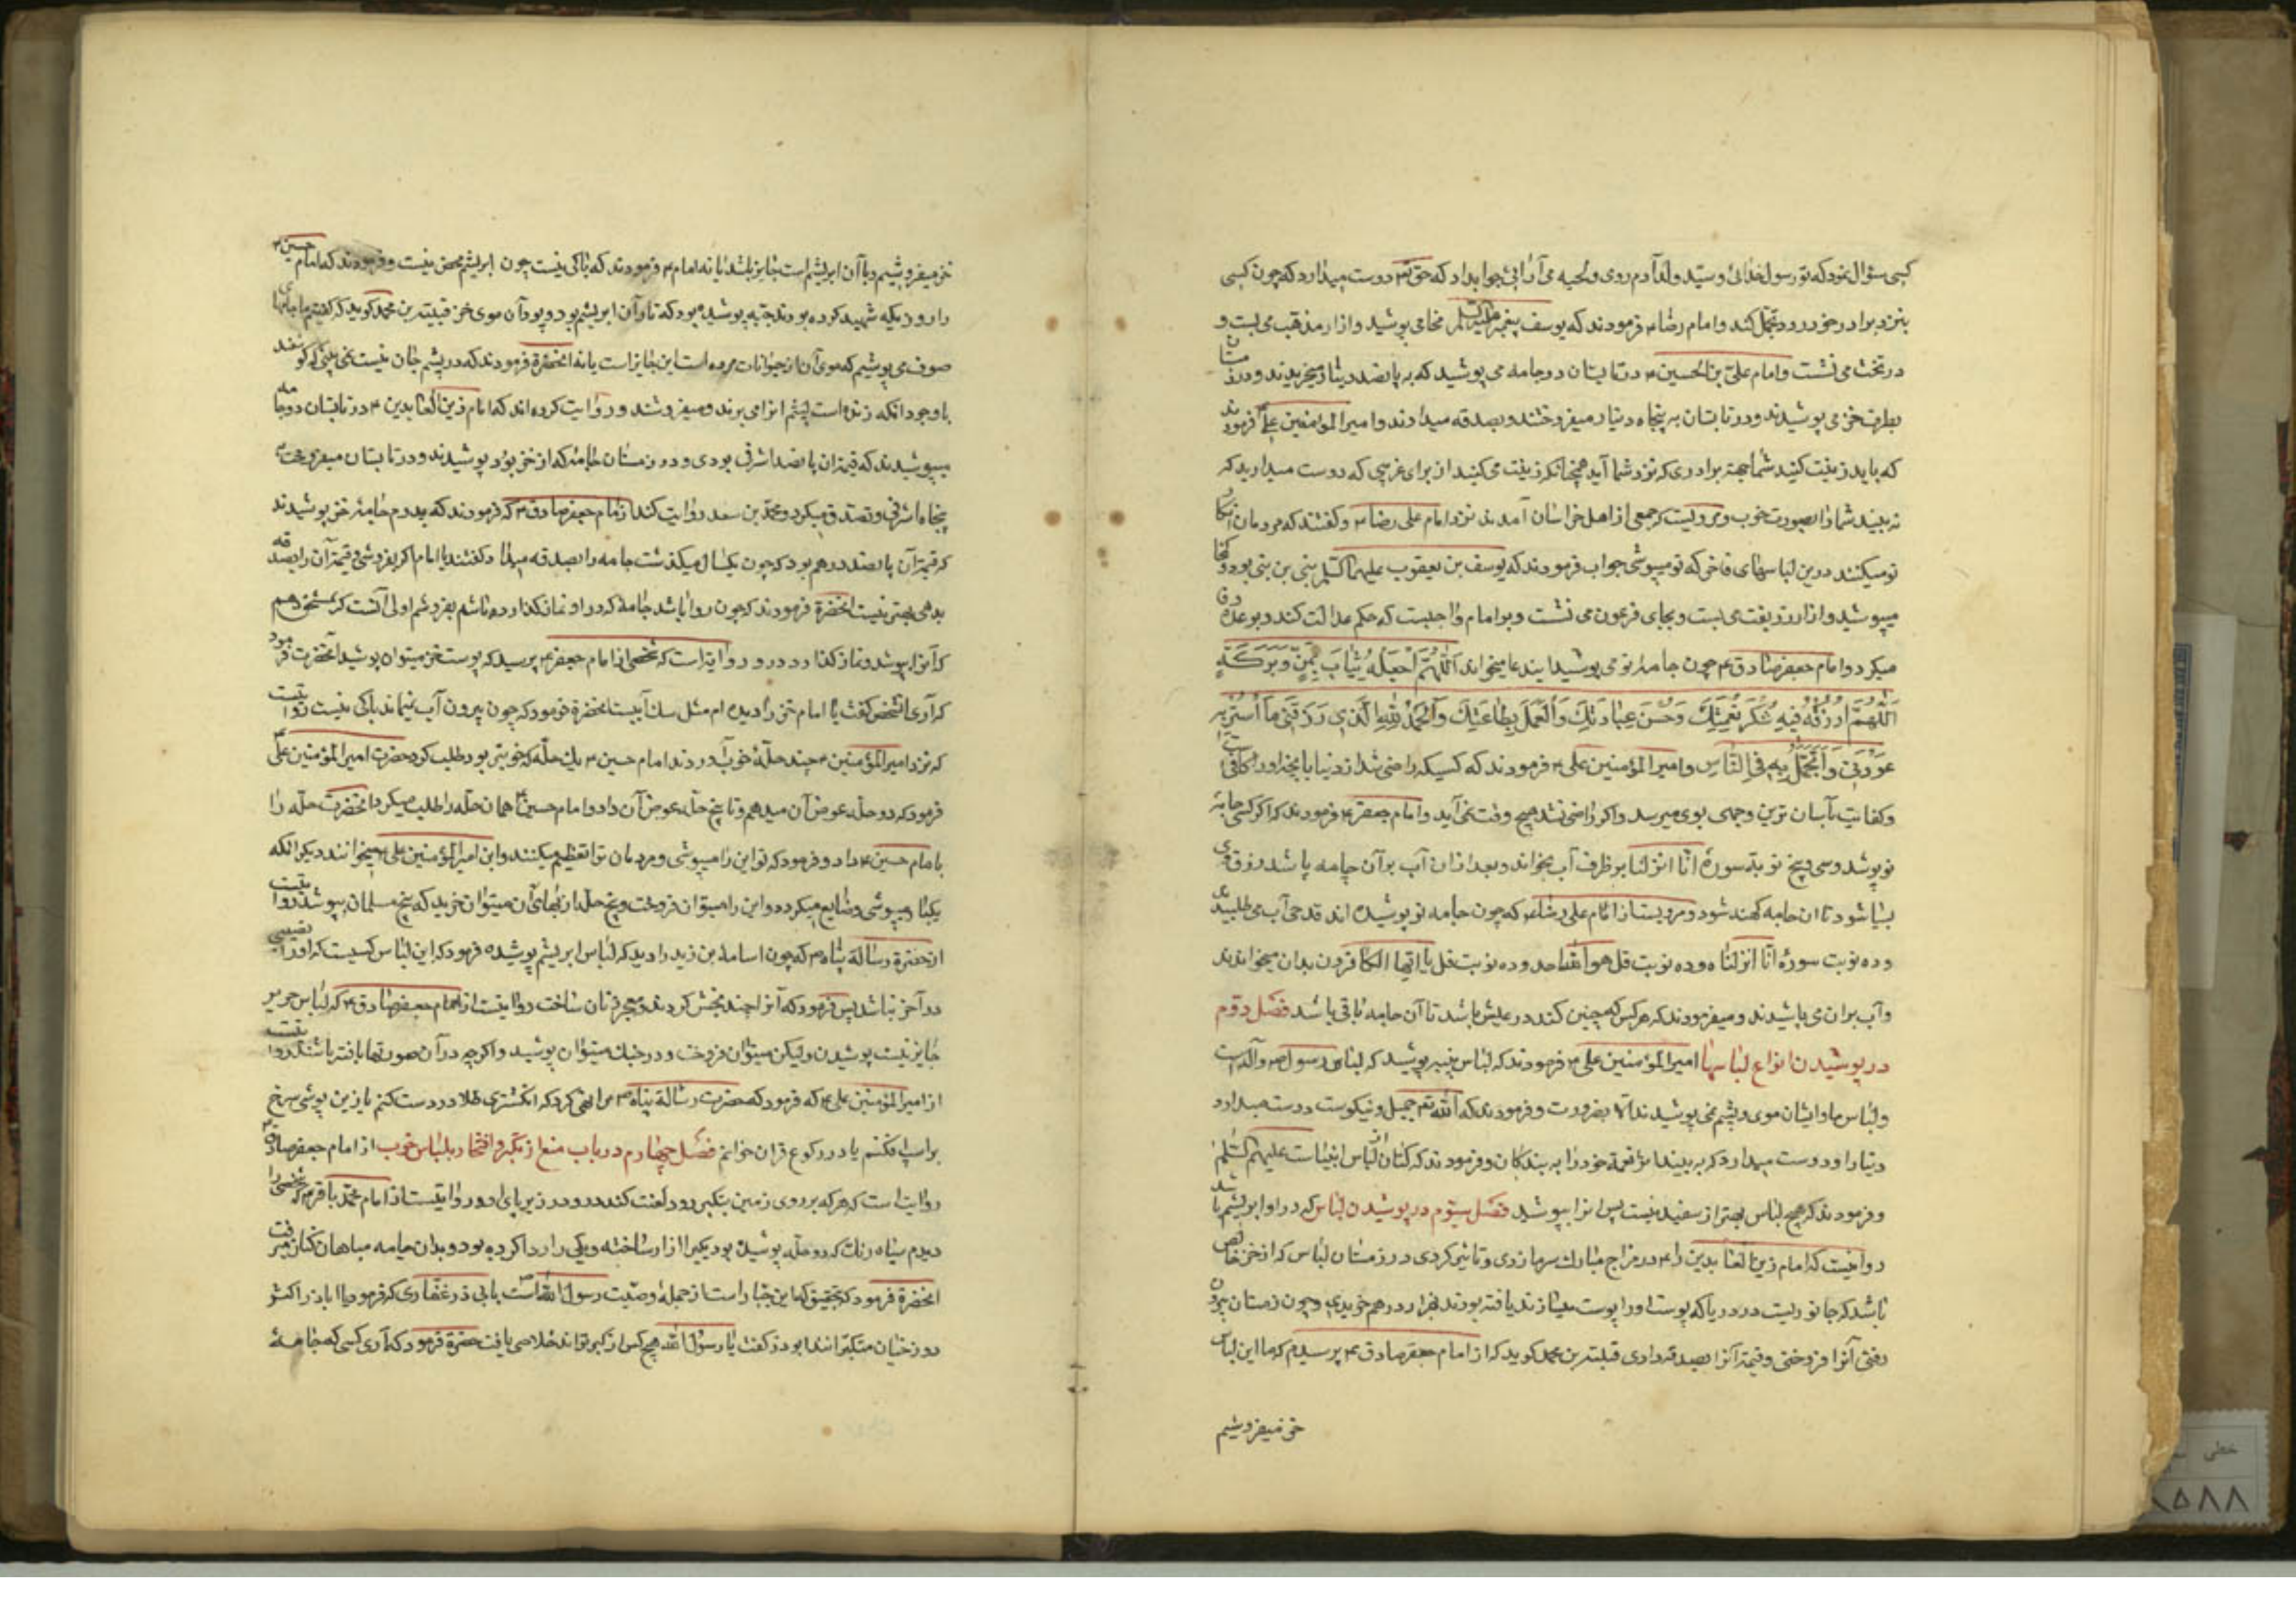 کسی سؤال نمود که تو رسول خدائی و سید ولد آدم روی و لحیه می آرائی جواب داد که حق تع دوست میدارد که چون کسی
بنزد برادر خود رود تجمل کند و امام رضا ع فرمودند که یوسف پیغمبر علیه السلم می پوشید و ازار مذهب می بست و
در تخت می نشست و امام علی بن الحسین ع در تابستان دو جامه می پوشید که به پانصد دینار میخریدند و در زمستان
مطرف خز می پوشیدند و در تابستان به پنجاه دینار میفروختند و بصدقه میدادند و امیر المؤمنین علی ع فرمودند
که باید زینت کنید شما جهة برادری که نزد شما آید همچنانکه زینت می کنید از برای غریبی که دوست میدارید که
به بیند شما را بصورت خوب و مرویست که جمعی از اهل خراسان آمدند نزد امام علی رضا ع و گفتند که مردمان انکار
تو میکنند درین لباسهای فاخر که تو میپوشی جواب فرمودند که یوسف بن یعقوب علیهما السلم نبی بن نبی بود و
میپوشید و ازار زربفت می بست و بجای فرعون می نشست و بر امام واجبست که حکم عدالت کند و بوعده وفا
میکرد و امام جعفر صادق ع چون جامۀ نو می پوشید این دعا میخواند اللهم اجعله ثیاب یمن و برکة
اللهم ارزقنی فیه شکر نعمتک و حسن عبادتک و العمل بطاعتک و الحمد لله الذی رزقنی ما استر به
عورتی و اتجمل به فی الناس و امیر المؤمنین علی ع فرمودند که کسیکه راضی شد از دنیا بآنچه او را کافی است
و کفایت بآسان ترین وجهی بوی میرسد و اگر راضی نشد هیچ وقت نمی آید و امام جعفر ع فرمودند که اگر کسی جامۀ
نو پوشد و سی و پنج نوبت سورۀ انا انزلنا بر ظرف آب بخواند و بعد از ان آب بر آن جامه پاشد رزق وی
بسیار شود تا ان جامه کهنه شود و مرویست از امام علی رضا ع که چون جامه نو پوشیده اند قدحی آب می طلبیدند
و ده نوبت سورۀ انا انزلناه و ده نوبت قل هو الله احد و ده نوبت قل یا ایها الکافرون بدان میخواندند
و آب بران می پاشیدند و میفرمودند که هر کس که چنین کند در عیش باشد تا آن جامه باقی باشد فصل دوم
در پوشیدن انواع لباسها امیر المؤمنین علی ع فرمودند که لباس پنبه پوشید که لباس رسول ص و آله است
و لباس ما و ایشان موی و پشم نمی پوشیدند الا بضرورت و فرمودند که الله تع جمیل و نیکوست دوست میدارد
زینت را و دوست میدارد که به بیند اثر نعمة خود را به بندگان و فرمودند که کتان از لباس انبیاست علیهم السلم
و فرمودند که هیچ لباس بهتر از سفید نیست پس انرا بپوشید فصل سیوم در پوشیدن لباس که در او ابریشم باشد
روایتست که امام زین العابدین را ع در مزاج مبارک سرما زدی و تاثیر کردی در زمستان لباس که از خز خالص
باشد که جانوریست در دریا که پوست او را پوستین سازند یافته بودند بهزار درهم خریدی و چون زمستان بیرون
رفتی آنرا فروختی و قیمة آنرا بصدقه دادی قتیبة بن محمد کوید که از امام جعفر صادق ع پرسیدم که ما این لباس
خز میفروشیم
خز میفروشیم و با آن ابریشم است جایز باشد یا نه امام ع فرمودند که باکی نیست چون ابریشم محض نیست و فرمودند که امام حسین ع
را روزیکه شهید کرده بودند جبّه پوشیده بود که تار آن ابریشم بود و پود آن موی خز قتیبة بن محمد کوید که گفتم ما جامهای
صوف می پوشیم که موی آن از حیوانات مرده است این جایز است یا نه انحضرة فرمودند که در پشم جان نیست نمی بینی که کوسفند
با وجود انکه زنده است پشم انرا می برند و میفروشند و روایت کرده اند که امام زین العابدین ع در تابستان دو جامه
میپوشیدند که قیمة ان پانصد اشرفی بودی و در زمستان جامۀ که از خز بود پوشیدند و در تابستان میفروخت به
پنجاه اشرفی و تصدق میکرد و محمد بن سعد روایت کند از امام جعفر صادق ع که فرمودند که پدرم جامۀ خز پوشیدند
که قیمة آن پانصد درهم بود که چون یکسال میگذشت جامه را بصدقه میداد گفتند یا امام اگر بفروشی و قیمة آن را بصدقه
بدهی بهتر نیست انحضرة فرمودند که چون روا باشد جامۀ که در او نماز گذارده باشم بفروشم اولی آنست که بمستحق دهم
که آنرا پوشد و نماز گذارد در او و روایة است که شخصی از امام جعفر ع پرسید که پوست خز میتوان پوشید آنحضرت فرمود
که آری آنشخص گفت یا امام خز را دیده ام مثل سگ آبیست انحضرة فرمود که چون بیرون آب نمیماند باکی نیست روایتست
که نزد امیر المؤمنین ع چند حلّۀ خوب آوردند امام حسین ع یک حلّه که خوبتر بود طلب کرد حضرت امیر المؤمنین علی ع
فرمود که دو حلّه عوض آن میدهم و تا پنج حلّه عوض آن داد و امام حسین ع همان حلّه را طلب میکرد انحضرت حلّه را
بامام حسین ع داد و فرمود که تو این را میپوشی و مردمان ترا تعظیم میکنند و ابن امیر المؤمنین علی ع میخوانند دیگر انکه
یکبار میپوشی و ضایع میکردد و این را میتوان فروخت و پنج حلّه از بهای آن میتوان خرید که پنج مسلمان بپوشند روایتست
از حضرة رسالة پناه ص که چون اسامة بن زید را دید که لباس ابریشم پوشیده فرمود که این لباس کسیست که او را نصیبی
در آخر نباشد پس فرمود که آنرا چند بخش کردند و معجر زنان ساخت روایتست از امام جعفر صادق ع که لباس حریر
جایز نیست پوشیدن ولیکن میتوان فروخت و در جنگ میتوان پوشید و اگر چه در آن صورتها بافته باشند روایتست
از امیر المؤمنین علی ع که فرمود که حضرت رسالة پناه ص مرا نهی کرد که انکشتری طلا در دست کنم یا زین پوش سرخ
بر اسپ افکنم یا در رکوع قران خوانم فصل چهارم در باب منع از تکبر و افتخار بلباس خوب از امام جعفر صادق ع
روایت است که هر که بر روی زمین بتکبر رود لعنت کند هر که در زیر پای او و روایتست از امام محمد باقر ع که شخصی را
دیدم سیاه رنگ که دو حلّه پوشیده بود یکیرا ازار ساخته و یکی را ردا کرده بود و بدان جامه مباهات کنان میرفت
انحضرة فرمود که بتحقیق که این جبّار است از جملۀ وصیّت رسول الله است بابی ذر غفاری که فرمود یا اباذر اکثر
دوزخیان متکبرانند ابوذر گفت یا رسول الله هیچ کس از کبر تواند خلاصی یافت حضرة فرمود که آری کسی که جامۀ
خطی